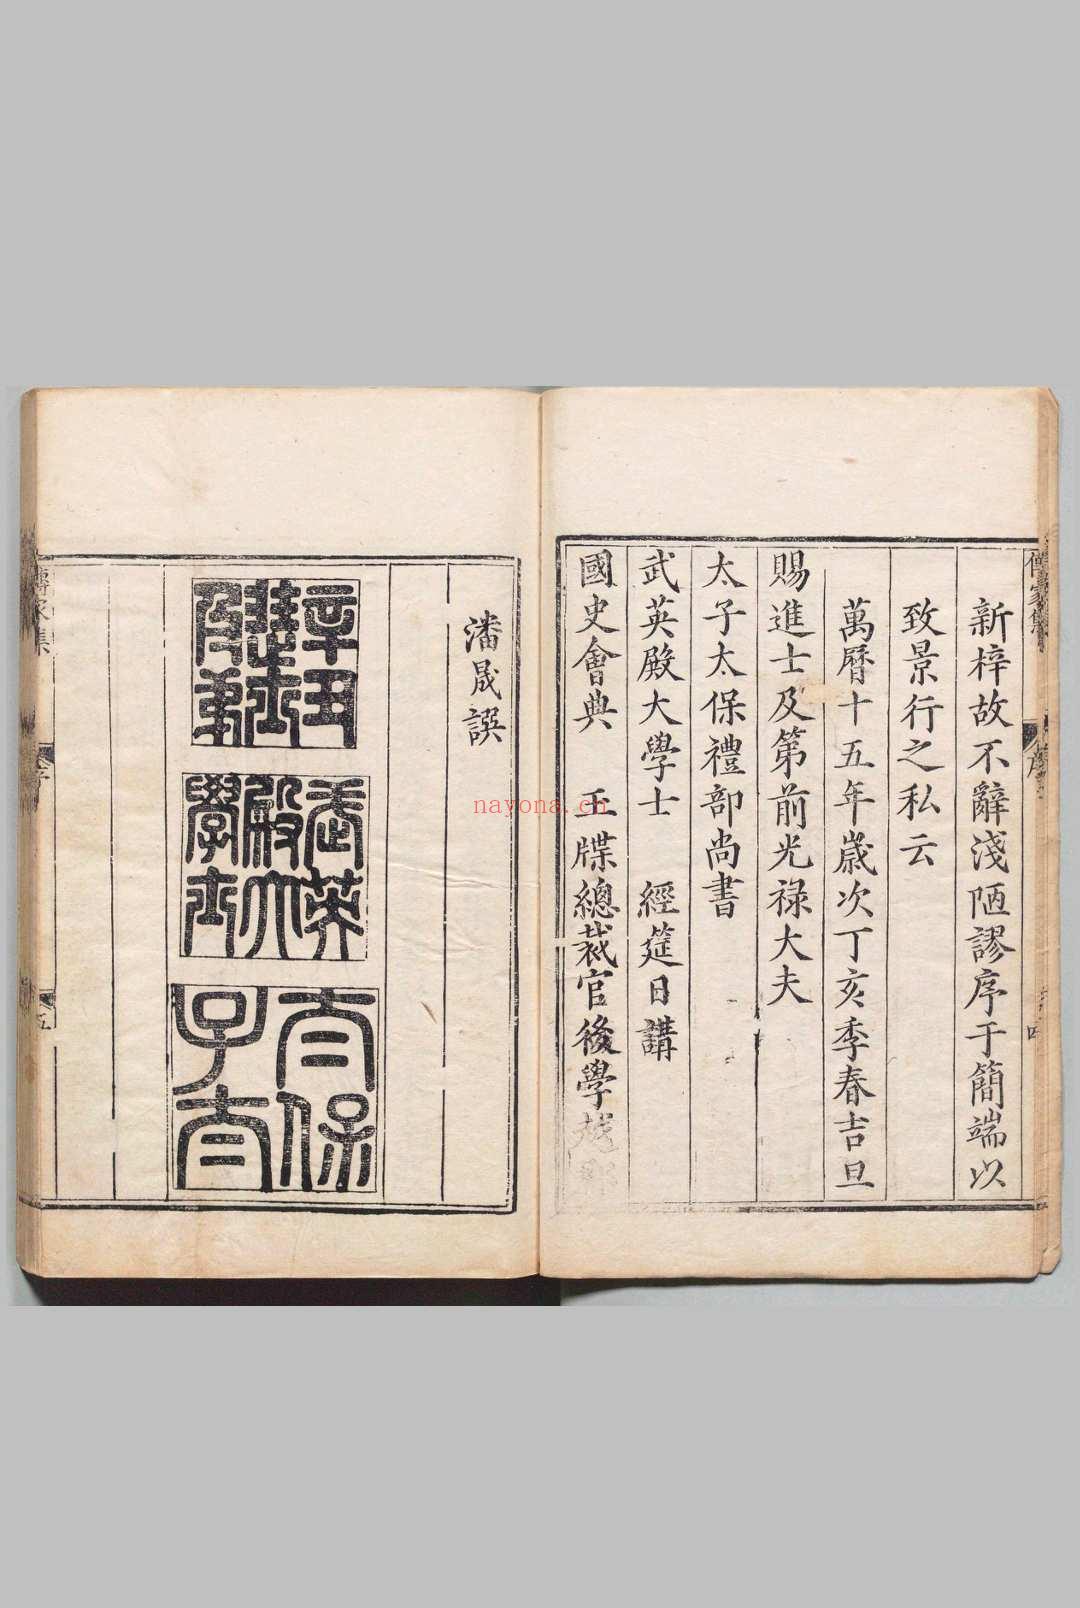 傳家集
序
新梓故不辭淺陋謬序于簡端以
致景行之私云
萬曆十五年歲次丁亥季春吉旦
賜進士及第前光禄大夫
太子太保禮部尚書
武英殿大學士 經筵日講
國史會典 玉牒總裁官後學
潘晟譔
辛丑
武英
殿大
學士
太保
子太
傳家集
序
五
nayona.cn